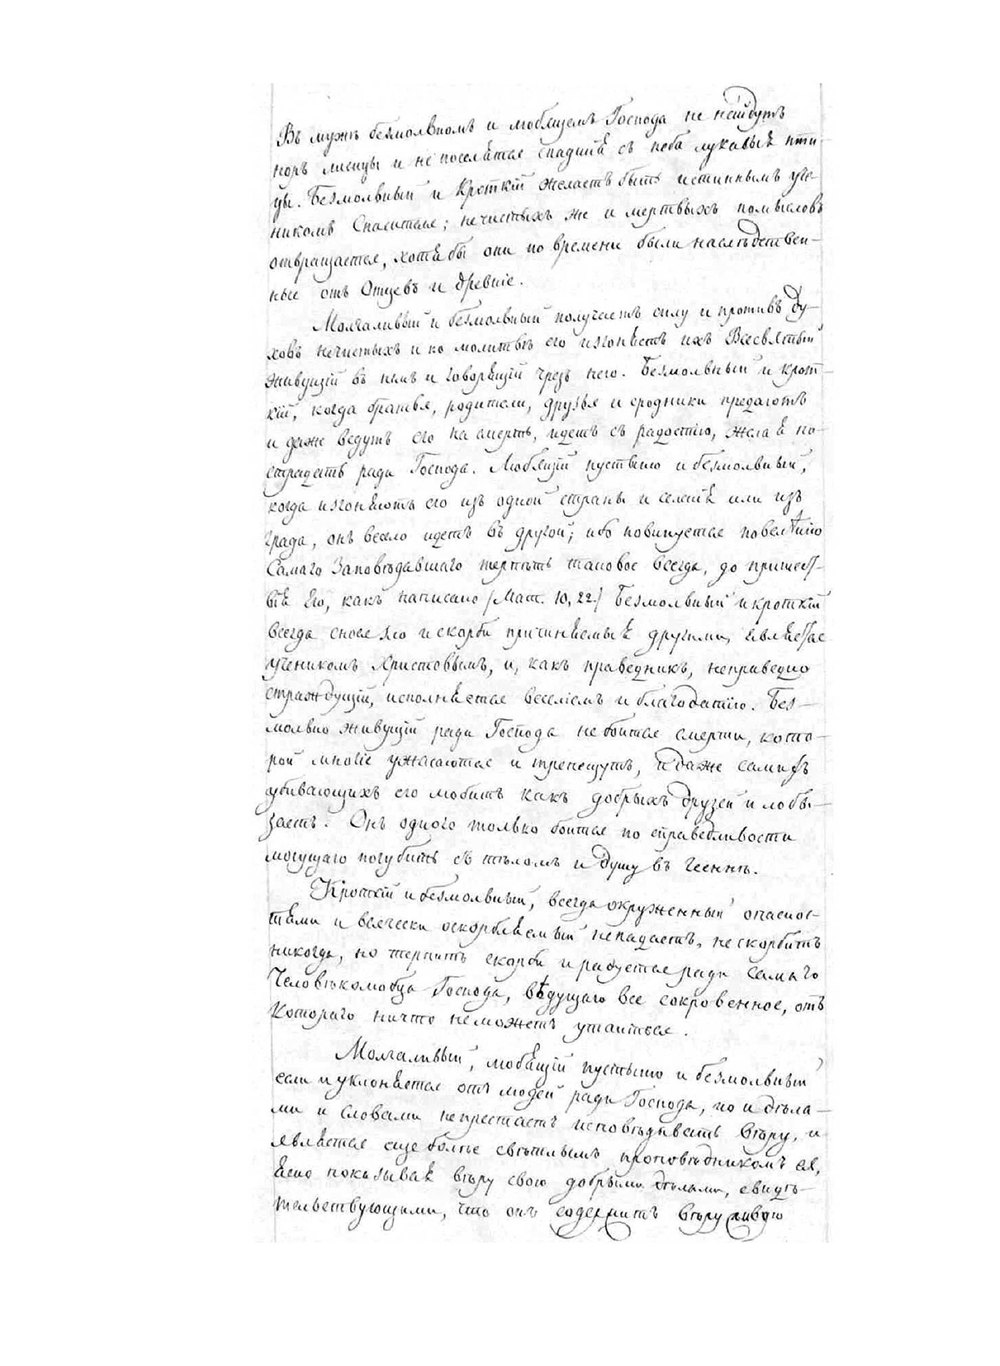 Въ мужѣ безмолвномъ и любящемъ Господа не найдутъ
норъ лисицы и не поселятся падшія съ неба лукавыя пти-
цы. Безмолвный и кроткій желаетъ быть истиннымъ уче-
никомъ Спасителя; нечистыхъ же и мертвыхъ помысловъ
отвращается, хотя бы они по времени были наслѣдствен-
ные отъ Отцевъ и древніе.
Молчаливый и безмолвный получаетъ силу и противъ ду-
ховъ нечистыхъ и по молитвѣ его изгоняетъ ихъ Всесвятый
живущій въ немъ и говорящій чрезъ него. Безмолвный и крот-
кій, когда братья, родители, друзья и сродники предаютъ
и даже ведутъ его на смерть, идетъ съ радостію, желая по-
страдать ради Господа. Любящій пустыню и безмолвный,
когда изгоняютъ его изъ одной страны и селенія или изъ
града, онъ весело идетъ въ другой; ибо повинуется повелѣнію
Самаго Заповѣдавшаго терпѣть таковое всегда, до пришест-
вія Его, какъ написано (Матѳ. 10, 22.) Безмолвный и кроткій
всегда снося зло и скорби причиняемыя другими, является
ученикомъ Христовымъ, и, какъ праведникъ, неправедно
страждущій, исполняется веселіемъ и благодатію. Без-
молвно живущій ради Господа не боится смерти, кото-
рой многіе ужасаются и трепещутъ, и даже самихъ
убивающихъ его любитъ какъ добрыхъ друзей и лобы-
заетъ. Онъ одного только боится по справедливости
могущаго погубить съ тѣломъ и душу въ гееннѣ.
Кроткій и безмолвный, всегда окруженный опаснос-
тями и всячески оскорбляемый не падаетъ, не скорбитъ
никогда, но терпитъ скорби и радуется ради Самаго
Человѣколюбца Господа, вѣдущаго все сокровенное, отъ
Котораго ничто не можетъ утаиться.
Молчаливый, любящій пустыню и безмолвный
если и уклоняется отъ людей ради Господа, но и дѣла-
ми и словами не престаетъ исповѣдывать вѣру, и
является еще болѣе свѣтлымъ проповѣдникомъ ея,
ясно показывая вѣру свою добрыми дѣлами, свидѣ-
тельствующими, что онъ содержитъ вѣру живую